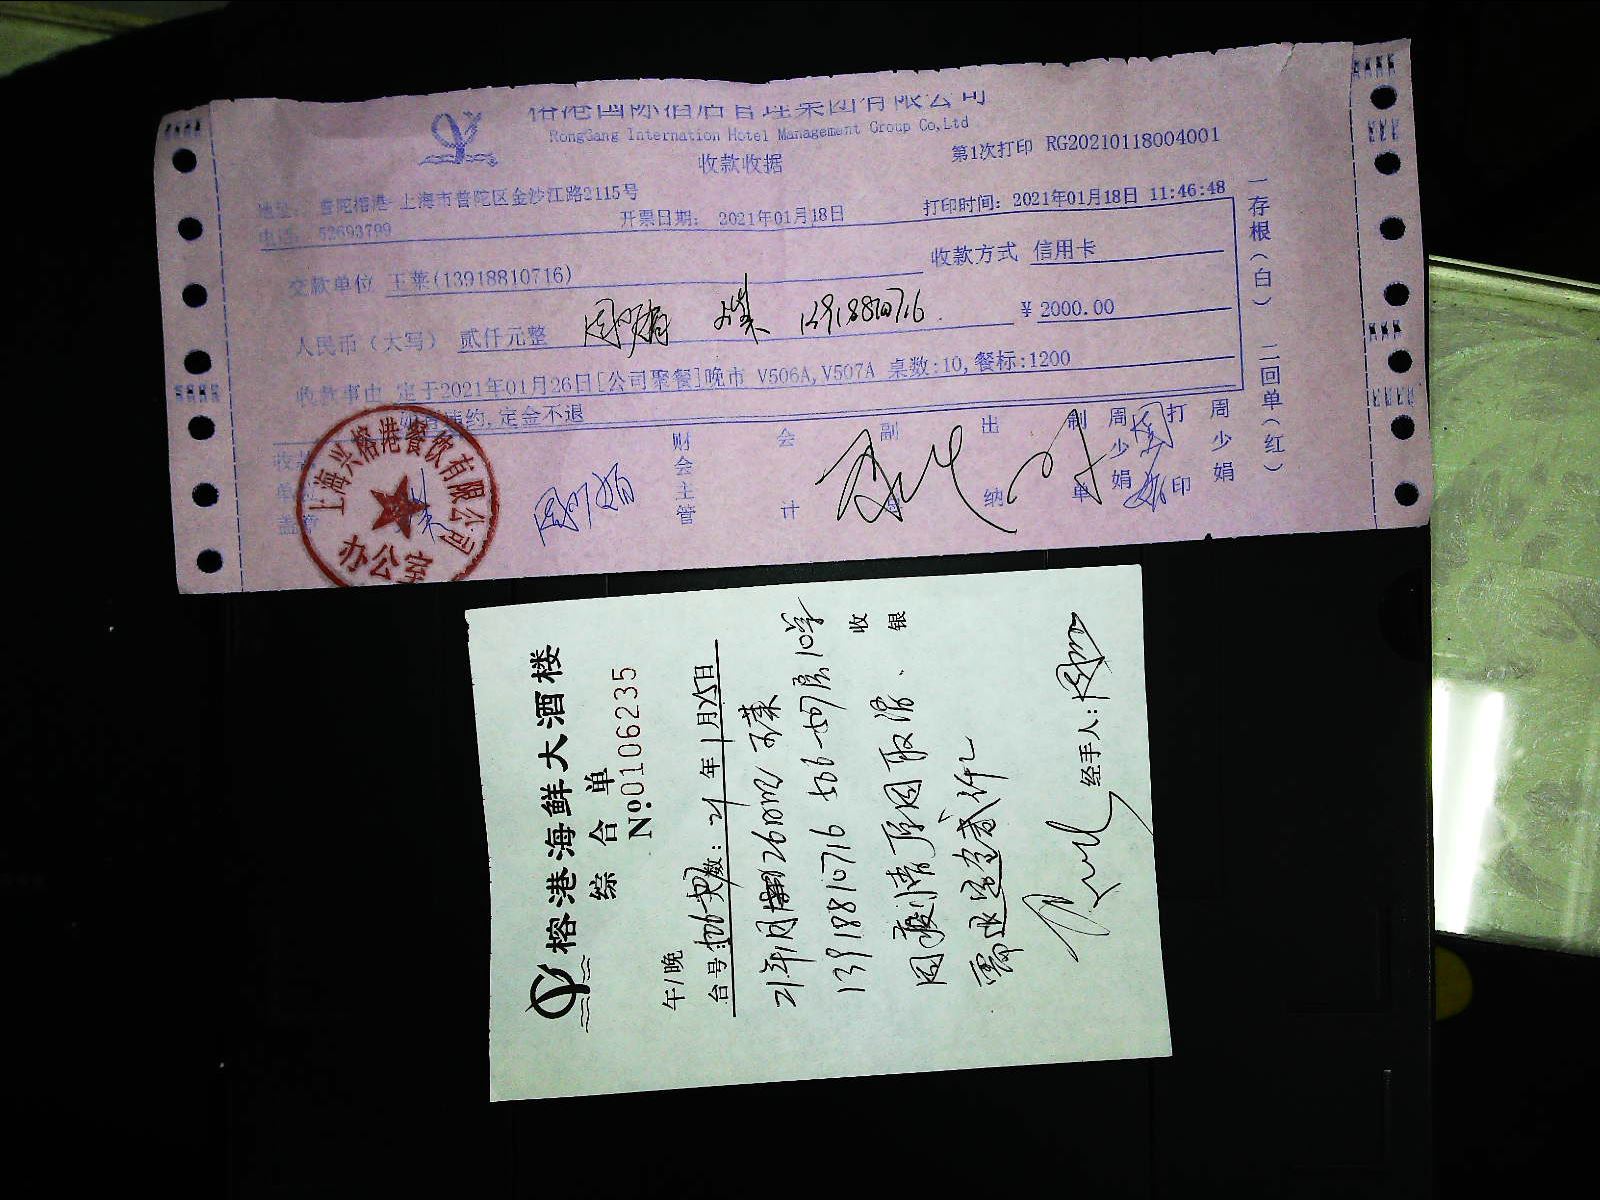 榕港国际酒店管理集团有限公司
RongGang Internation Hotel Management Group Co,Ltd
收款收据
第1次打印 RG20210118004001
地址: 普陀榕港-上海市普陀区金沙江路2115号
电话: 52693799
开票日期: 2021年01月18日
打印时间: 2021年01月18日 11:46:48
交款单位 王莱(13918810716)
收款方式 信用卡
人民币(大写) 贰仟元整
13918810716
¥ 2000.00
收款事由 定于2021年01月26日[公司聚餐]晚市 V506A,V507A 桌数:10,餐标:1200
违约,定金不退
收款单位盖章
财会主管
会计
副
出纳
制单 周少娟
打印 周少娟
一存根(白) 二回单(红)
上海兴榕港餐饮有限公司
办公室
榕港海鲜大酒楼
综合单
№0106235
午/晚
台号: 数: 21年1月25日
21年1月26日
13918810716 506-507房10桌
因疫情原因取消.
需退还定金贰仟元
收银
经手人: